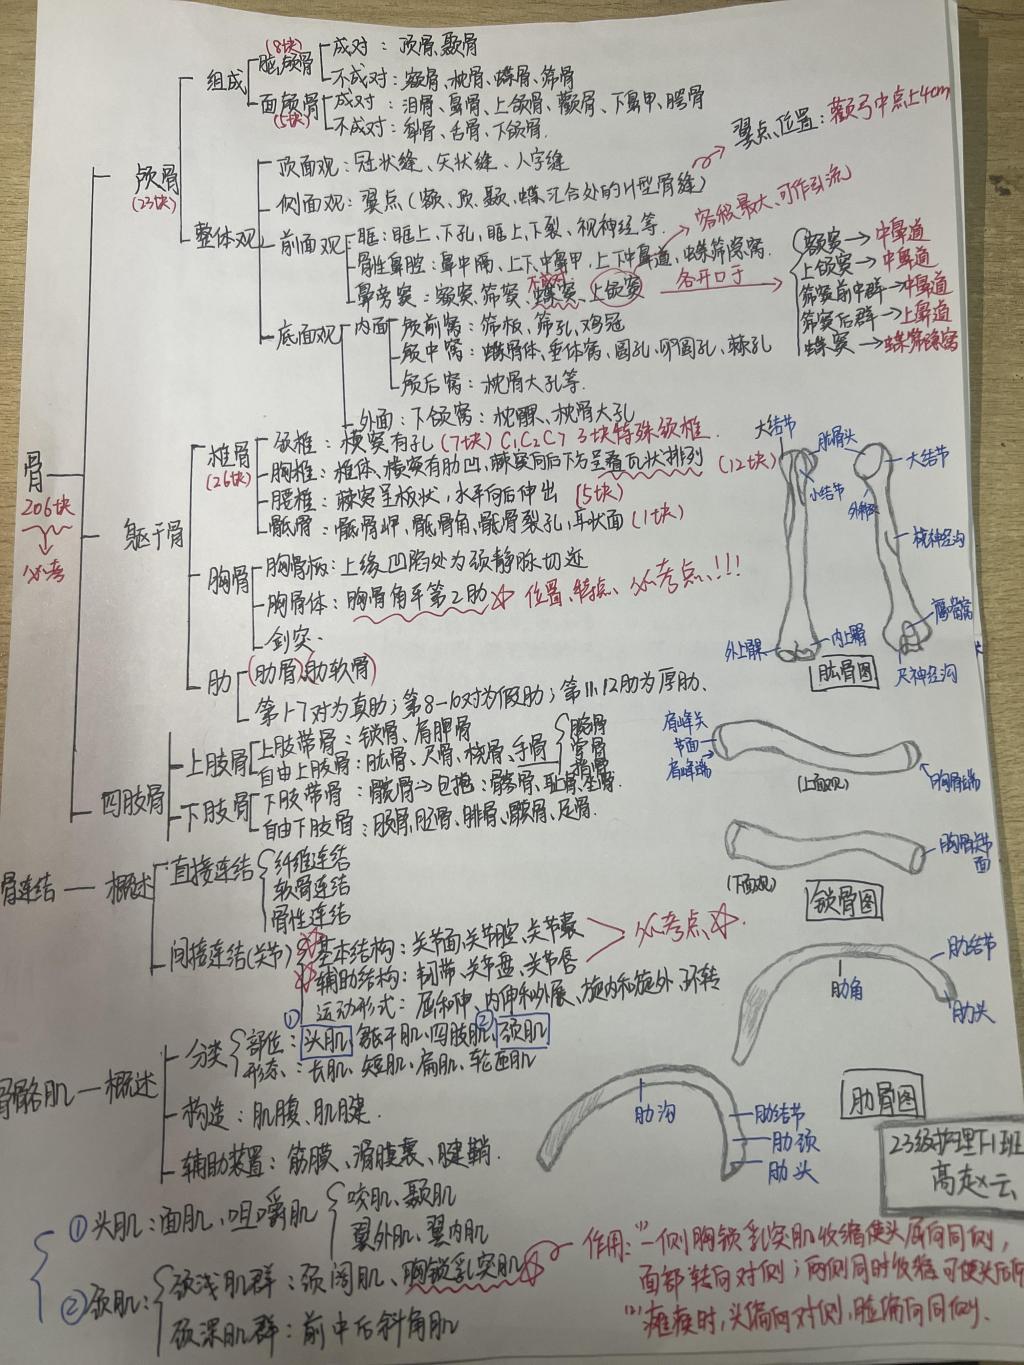 (8块)
脑颅骨 成对：顶骨、颞骨
组成
不成对：额骨、枕骨、蝶骨、筛骨
面颅骨 成对：泪骨、鼻骨、上颌骨、颧骨、下鼻甲、腭骨
(15块) 不成对：犁骨、舌骨、下颌骨.
翼点、位置：颧弓中点上4cm
颅骨
(23块)
顶面观：冠状缝、矢状缝、人字缝
侧面观：翼点(额、顶、颞、蝶汇合处的H型骨缝)
整体观
前面观 眶：眶上、下孔，眶上、下裂、视神经等.
容积最大、可作引流
骨性鼻腔：鼻中隔、上下中鼻甲、上下中鼻道、蝶筛隐窝.
鼻旁窦：额窦、筛窦、蝶窦、上颌窦 各开口于
额窦→中鼻道
上颌窦→中鼻道
筛窦前中群→中鼻道
筛窦后群→上鼻道
蝶窦→蝶筛隐窝
底面观 内面 颅前窝：筛板、筛孔、鸡冠
颅中窝：蝶骨体、垂体窝、圆孔、卵圆孔、棘孔
颅后窝：枕骨大孔等.
外面：下颌窝：枕髁、枕骨大孔
骨
206块
必考
躯干骨
椎骨
(26块)
颈椎：横突有孔(7块)C1C2C7 3块特殊颈椎.
胸椎：椎体、横突有肋凹，棘突向后下方呈叠瓦状排列(12块)
腰椎：棘突呈板状，水平向后伸出 (5块)
骶骨：骶骨岬、骶骨角、骶骨裂孔，耳状面(1块)
胸骨
胸骨柄：上缘凹陷处为颈静脉切迹
胸骨体：胸骨角平第2肋☆ 位置、特点、必考点、!!!
剑突.
肋 (肋骨、肋软骨)
第1-7对为真肋；第8-10对为假肋；第11.12肋为浮肋.
大结节
肱骨头
大结节
小结节
外科颈
桡神经沟
鹰嘴窝
外上髁
内上髁
肱骨图
尺神经沟
四肢骨
上肢骨 上肢带骨：锁骨、肩胛骨
自由上肢骨：肱骨、尺骨、桡骨、手骨
腕骨
掌骨
指骨
下肢骨 下肢带骨：髋骨→包括：髂骨、耻骨、坐骨.
自由下肢骨：股骨、胫骨、腓骨、髌骨、足骨.
肩峰关
节面
肩峰端
胸骨端
(上面观)
胸骨关节
面
(下面观)
锁骨图
骨连结—概述
直接连结
纤维连结
软骨连结
骨性连结
间接连结(关节)
☆基本结构：关节面、关节腔、关节囊
必考点☆.
☆辅助结构：韧带、关节盘、关节唇
运动形式：屈和伸、内收和外展、旋内和旋外、环转
肋结节
肋角
肋头
骨骼肌—概述
分类 部位：①头肌、躯干肌、四肢肌、②颈肌
形态：长肌、短肌、扁肌、轮匝肌
构造：肌腹、肌腱.
辅助装置：筋膜、滑膜囊、腱鞘.
肋沟
肋结节
肋颈
肋头
肋骨图
①头肌：面肌、咀嚼肌
咬肌、颞肌
翼外肌、翼内肌
②颈肌：
颈浅肌群：颈阔肌、胸锁乳突肌☆
颈深肌群：前中后斜角肌
作用：⑴一侧胸锁乳突肌收缩使头屈向同侧，
面部转向对侧；两侧同时收缩可使头后
⑵瘫痪时，头偏向对侧，脸偏向同侧.